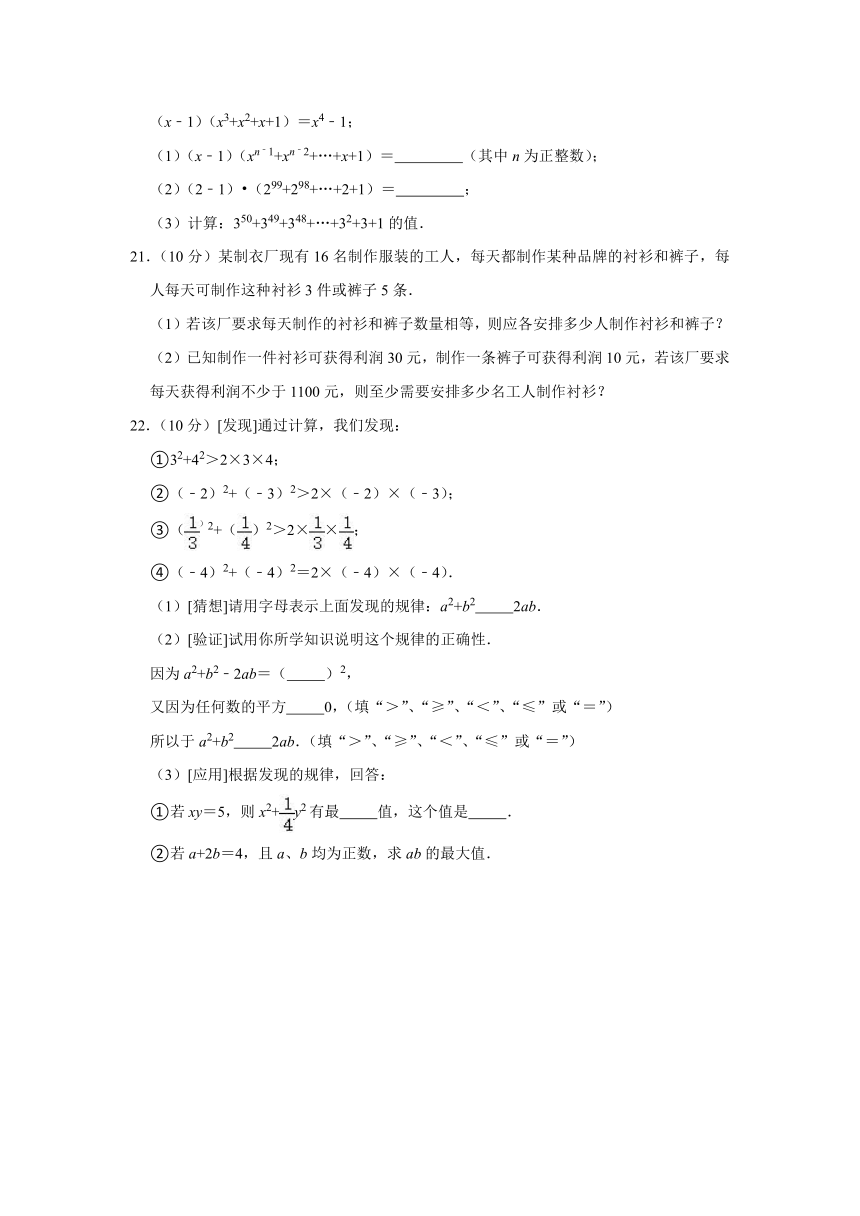 (x﹣1)(x³+x²+x+1)=x⁴﹣1;
(1)(x﹣1)(xⁿ﹣¹+xⁿ﹣²+…+x+1)=________(其中 n 为正整数);
(2)(2﹣1)•(2⁹⁹+2⁹⁸+…+2+1)=________;
(3)计算:3⁵⁰+3⁴⁹+3⁴⁸+…+3²+3+1 的值.
21.(10 分)某制衣厂现有 16 名制作服装的工人,每天都制作某种品牌的衬衫和裤子,每
人每天可制作这种衬衫 3 件或裤子 5 条.
(1)若该厂要求每天制作的衬衫和裤子数量相等,则应各安排多少人制作衬衫和裤子?
(2)已知制作一件衬衫可获得利润 30 元,制作一条裤子可获得利润 10 元,若该厂要求
每天获得利润不少于 1100 元,则至少需要安排多少名工人制作衬衫?
22.(10 分)[发现]通过计算,我们发现:
①3²+4²>2×3×4;
②(﹣2)²+(﹣3)²>2×(﹣2)×(﹣3);
③(1/3)²+(1/4)²>2×1/3×1/4;
④(﹣4)²+(﹣4)²=2×(﹣4)×(﹣4).
(1)[猜想]请用字母表示上面发现的规律:a²+b²____2ab.
(2)[验证]试用你所学知识说明这个规律的正确性.
因为 a²+b²﹣2ab=(____)²,
又因为任何数的平方____0,(填“>”、“≥”、“<”、“≤”或“=”)
所以于 a²+b²____2ab.(填“>”、“≥”、“<”、“≤”或“=”)
(3)[应用]根据发现的规律,回答:
①若 xy=5,则 x²+1/4y² 有最____值,这个值是____.
②若 a+2b=4,且 a、b 均为正数,求 ab 的最大值.